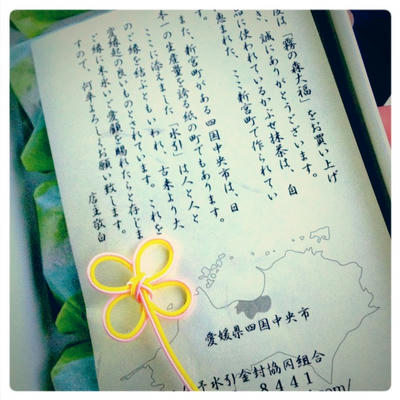 度は「霧の森大福」をお買い上げ
き、誠にありがとうございます。
品に使われているかぶせ抹茶は、自
恵まれた、ここ新宮町で作られてい
す。
また、新宮町がある四国中央市は、日
本一の生産量を誇る紙の町でもあります。
ここに添えました「水引」は人と人と
のご縁を結ぶともいわれ、古来より大
変縁起の良いものとされています。これを
ご縁に末永いご愛顧を賜れたらと存じま
すので、何卒よろしくお願い致します。
店主敬白
愛媛県四国中央市
予水引金封協同組合
8441